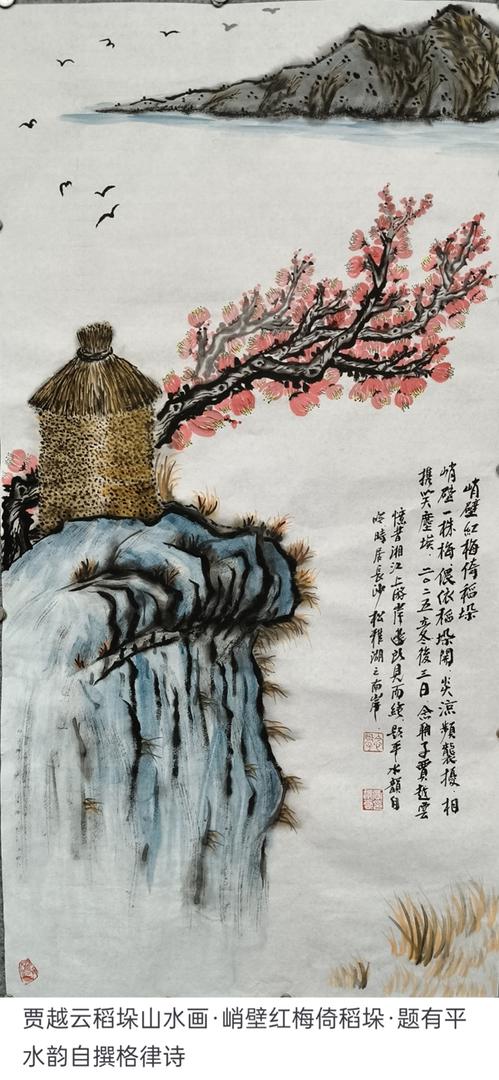 峭壁紅梅倚稻垛
峭壁一株梅偎依稻垛開炎涼頻襲擾相
携笑塵埃二〇二五立冬後三日賈越雲
憶昔湘江上游岸邊所見而繪題平水韻自
咏時居長沙松雅湖之南岸
贾越云稻垛山水画·峭壁红梅倚稻垛·题有平
水韵自撰格律诗